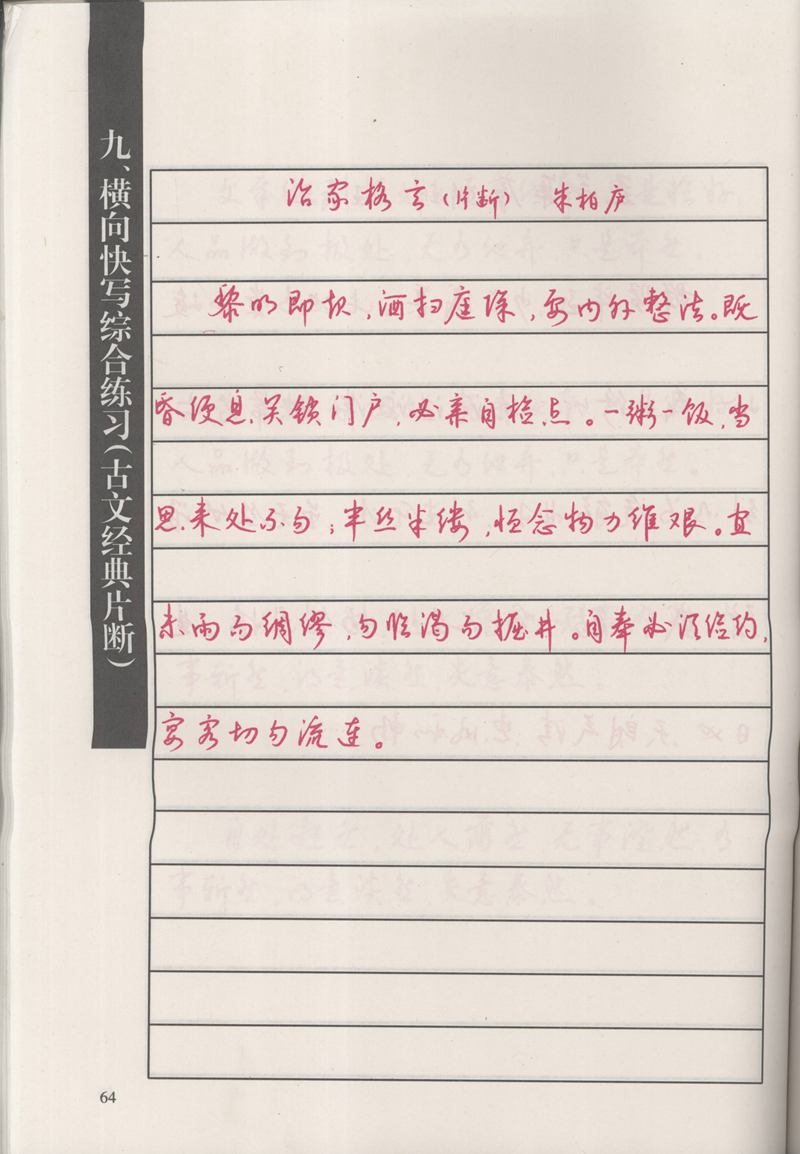 九、横向快写综合练习（古文经典片断）
治家格言（片断） 朱柏庐
黎明即起，洒扫庭除，要内外整洁。既
昏便息，关锁门户，必亲自检点。一粥一饭，当
思来处不易；半丝半缕，恒念物力维艰。宜
未雨而绸缪，勿临渴而掘井。自奉必须俭约，
宴客切勿流连。
64